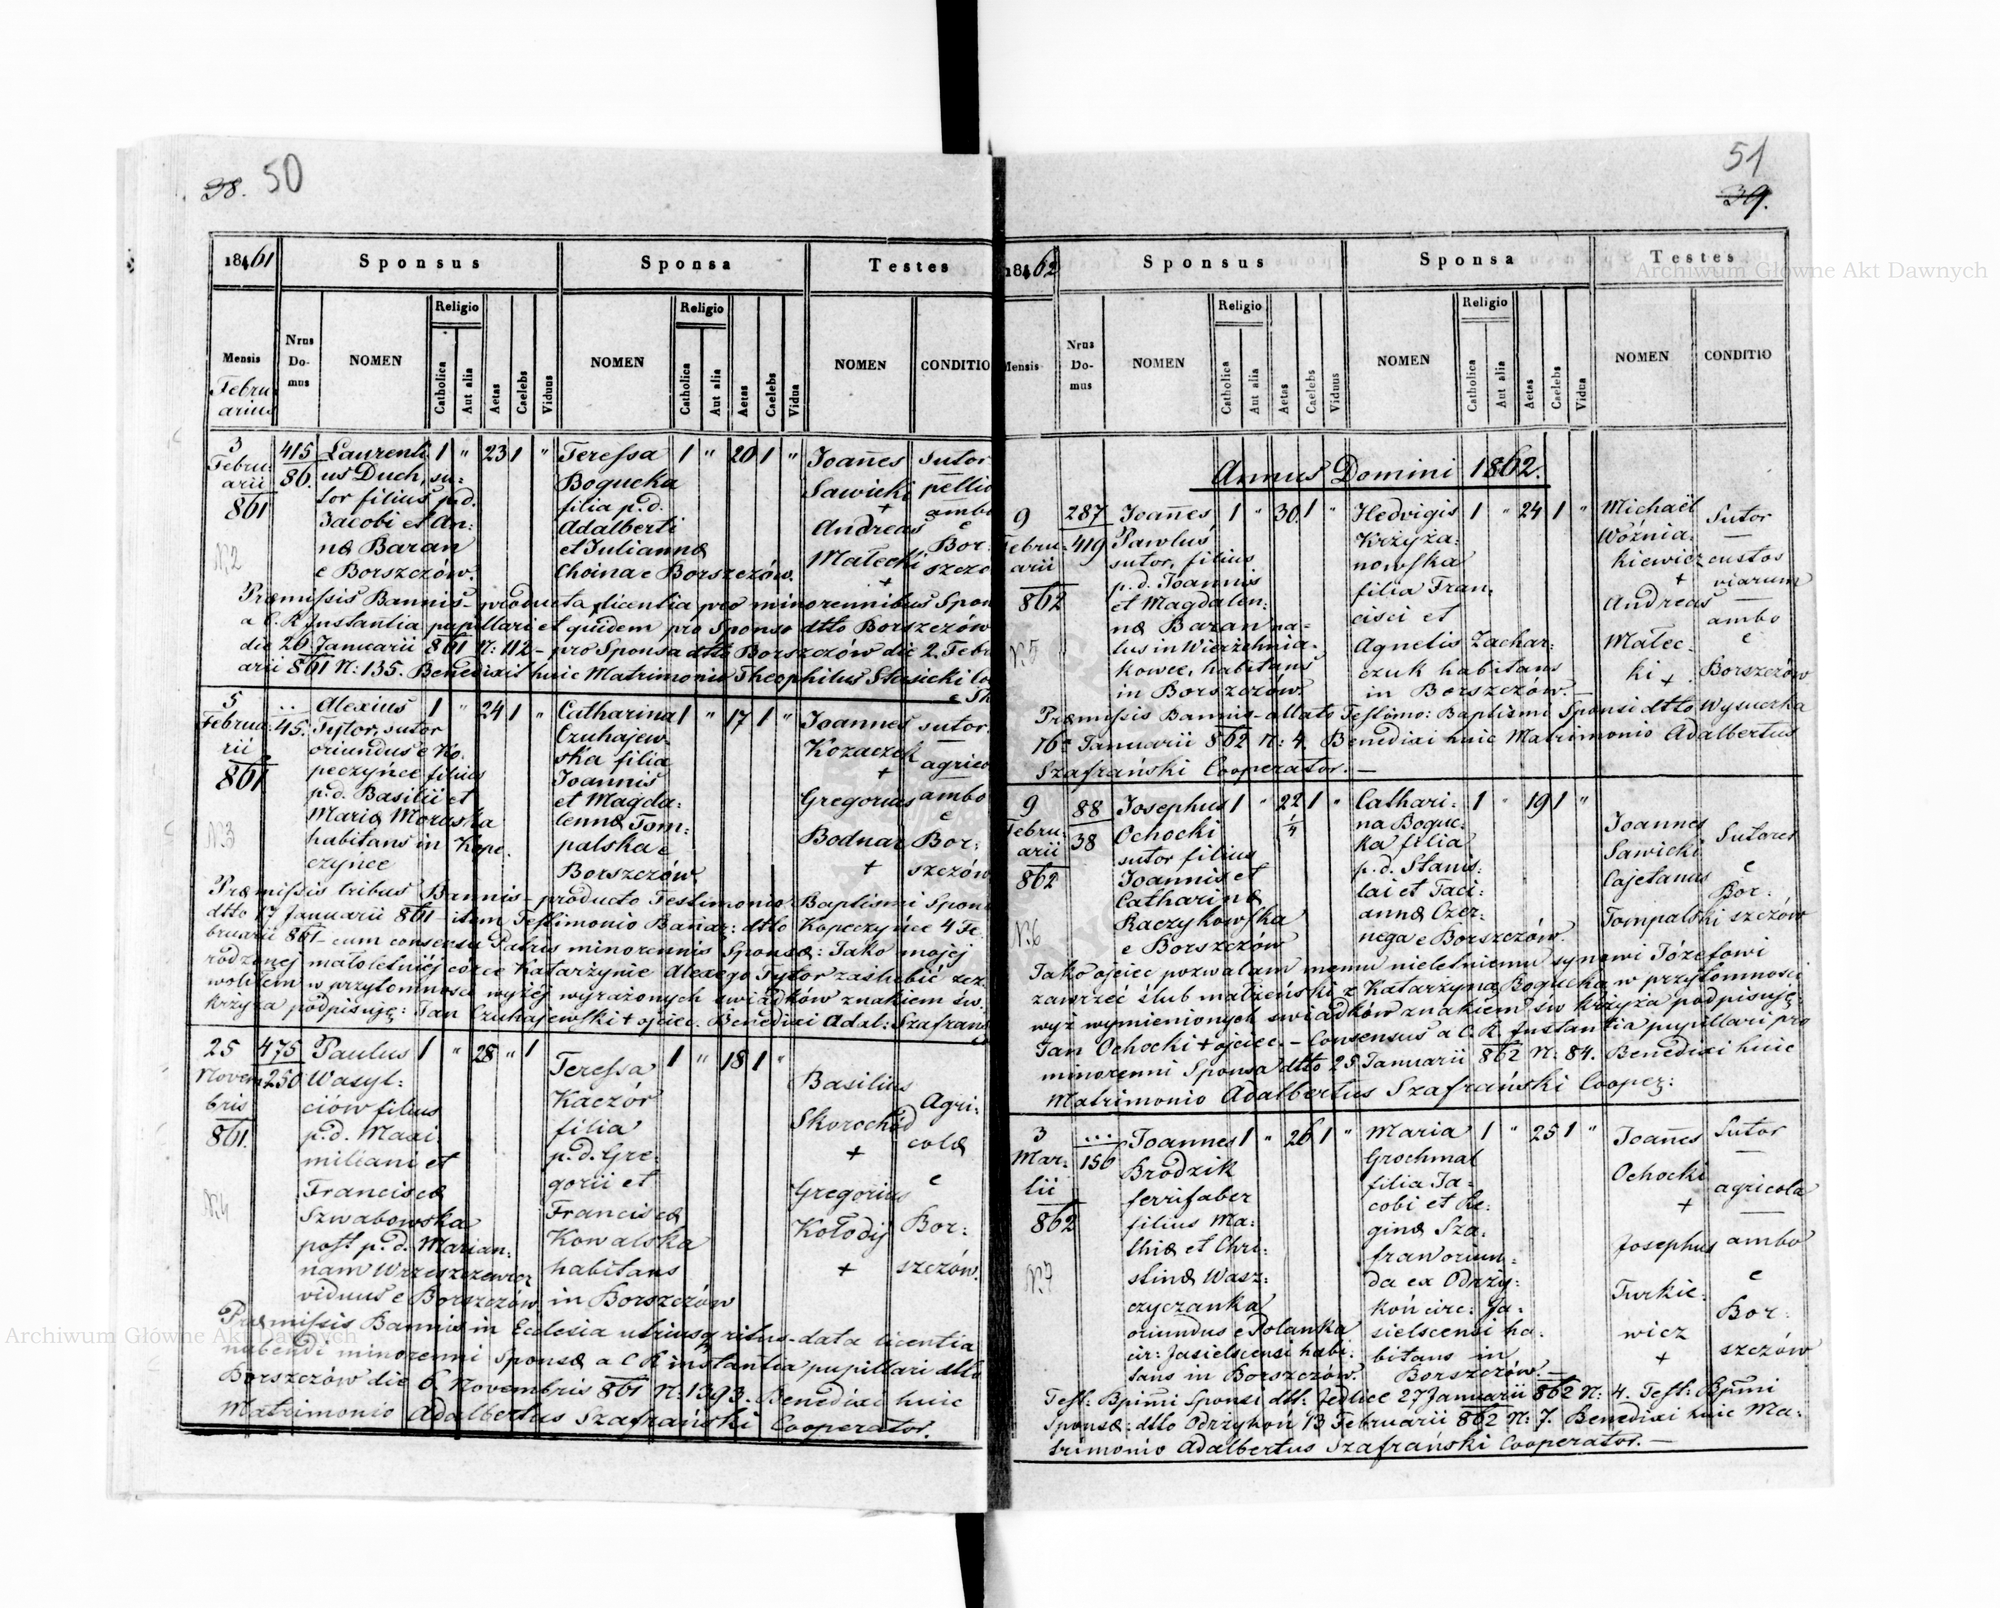 38. 50
1861
Sponsus
Sponsa
Testes
Mensis
Februarius
Nrus Domus
NOMEN
Religio
Catholica
Aut alia
Aetas
Caelebs
Viduus
NOMEN
Religio
Catholica
Aut alia
Aetas
Caelebs
Vidua
NOMEN
CONDITIO
3
Febru:
arii
861
N.2
415
86.
Laurenti
us Duch, su:
tor filius p.d.
Jacobi et An:
næ Baran
e Borszczów.
1 " 23 1 "
Teressa
Bogucka
filia p.d.
Adalberti
et Juliannæ
Choina e Borszczów.
1 " 20 1 "
Joañes
Sawicki
+
Andreas
Matecki
+
sutor
pellio
ambo
e
Bor:
szczo
Præmissis Bannis - producta licentia pro minorennibus Spon
a C. R. Instantia pupillari et quidem pro Sponso dtto Borszczów
die 26 Januarii 861 N: 112 - pro Sponsa dtto Borszczów die 2. Febr
arii 861 N: 135. Benedixit huic Matrimonio Theophilus Stasicki
5
Februa:
rii
861
N.3
..
45.
Alexius
Tytor, sutor
oriundus e Ko:
peczyńce filius
p.d. Basilii et
Mariæ Moruska
habitans in Kope:
czyńce
1 " 24 1 "
Catharina
Czuhajew:
ska filia
Joannis
et Magda:
lennæ Tom:
palska e
Borszczów
1 " 17 1 "
Joannes
Kozaczek
+
Gregorius
Bodnar
+
sutor.
agrico
ambo
e
Bor:
szczów
Præmissis tribus Bannis - producto Testimonio Baptismi Spon
dtto 17 Januarii 861 - item Testimonio Banar: dtto Kopeczyńce 4 Fe:
bruarii 861 - cum consensu Patris minorennis Sponsæ: Jako mojej
rodzonej małoletniéj córce Katarzynie Alexego Tytor zaślubić zez:
woliłem w przytomnosci wyżej wyrażonych świádków znakiem św.
krzyża podpisuję: Jan Czuhajewski + ojciec. Benedixi Adal: Szafrańs
25
Novem
bris
861.
N.4
475
250
Paulus
Wasyl:
ciów filius
p.d. Maxi
miliani et
Franciscæ
Szwabowska
post p.d. Marian:
nam Wrzeszczewicz
viduus e Borszczów
1 " 28 " 1
Teressa
Kaczór
filia
p.d. Gre:
gorii et
Franciscæ
Kowalska
habitans
in Borszczów
1 " 18 1 "
Basilius
Skorochód
+
Gregorius
Kołodij
+
Agri:
colæ
e
Bor:
szczów.
Præmissis Bannis in Ecclesia utriusq ritus - data licentia
nubendi minorenni Sponsæ a C R instantia pupillari dtto
Borszczów die 6. Novembris 861 N: 1393. Benedixi huic
Matrimonio Adalbertus Szafrański Cooperator.
51
39.
1862
Sponsus
Sponsa
Testes
Mensis
Nrus Domus
NOMEN
Religio
Catholica
Aut alia
Aetas
Caelebs
Viduus
NOMEN
Religio
Catholica
Aut alia
Aetas
Caelebs
Vidua
NOMEN
CONDITIO
Annus Domini 1862.
9
Febru:
arii
862
N.5
287
419
Joañes
Pawlus
sutor, filius
p.d. Joannis
et Magdalen:
næ Baran na:
tus in Wierzchnia:
kowce, habitans
in Borszczów.
1 " 30 1 "
Hedvigis
Krzyża:
nowska
filia Fran:
cisci et
Agnetis Zachar:
czuk habitans
in Borszczów.
1 " 24 1 "
Michaël
Wóźnia:
kiewicz
+
Andreas
Matec:
ki +
Sutor
custos
viarum
ambo
e
Borszczów
Præmissis Bannis - allato Testimo: Baptismi Sponsi dtto Wysuczka
16ª Januarii 862 N: 4. Benedixi huic Matrimonio Adalbertus
Szafrański Cooperator. -
9
Febru:
arii
862
N.6
88
38
Josephus
Ochocki
sutor filius
Joannis et
Catharinæ
Raczykowska
e Borszczów
1 " 22 1/4 1 "
Cathari:
na Boguc:
ka filia
p.d. Stanis:
lai et Taci:
annæ Czer:
nega e Borszczów.
1 " 19 1 "
Joannes
Sawicki
Cajetanus
Tompalski
Sutores
e
Bor:
szczów
Jako ojciec pozwalam memu nieletniemu synowi Józefowi
zawrzéć ślub małżeński z Katarzyną Bogucką w przytomności
wyż wymienionych świadków znakiem św krzyża podpisuję:
Jan Ochocki + ojciec. - Consensus a C. R. Instantia pupillari pro
minorenni Sponsa dtto 25 Januarii 862 N: 84. Benedixi huic
Matrimonio Adalbertus Szafrański Cooper:
3
Mar:
tii
862
N.7
...
156
Joannes
Brodzik
ferrifaber
filius Ma:
thiæ et Chri:
stinæ Wasz:
czyczanka
oriundus e Polanka
cir: Jasielscensi habi:
tans in Borszczów.
1 " 26 1 "
Maria
Grochmal
filia Ja:
cobi et Re:
ginæ Sza:
fran oriun:
da ex Odrzy:
koń circ: Ja:
sielscensi ha:
bitans in
Borszczów. -
1 " 25 1 "
Joañes
Ochocki
+
Josephus
Turkie:
wicz
+
Sutor
agricola
ambo
e
Bor:
szczów
Test: Bpimi Sponsi dtt: Jedlice 27 Januarii 862 N: 4. Test: Bpmi
Sponsæ: dtto Odrzykoń 13 Februarii 862 N: 7. Benedixi huic Ma:
trimonio Adalbertus Szafrański Cooperator. -
Archiwum Główne Akt Dawnych
Archiwum Główne Akt Dawnych